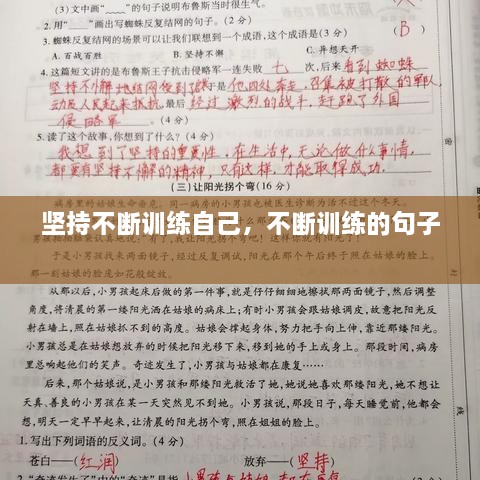 (3)文中"﹏﹏"的句子说明布鲁斯当时很生气。
2.用"——"画出写蜘蛛反复结网的句子。(2分)
3.蜘蛛反复结网的场景可以让我们联想到一个成语,这个成语是(3分)
(B)
A.百战百胜 B.坚持不懈 C.异想天开
4.这篇短文讲的是布鲁斯王子抗击侵略军一连失败 七 次,后来 看到蜘蛛
坚持不懈地结网
他四处奔走,召集被打散的军队,
动员人民起来抵抗,最后 经过激烈的战斗,赶跑了外国
侵略军。(4分)
5.读了这个故事,你想到了什么?(4分)
我想到了坚持的重要性,在生活中,无论做什么事情,
都要有坚持不懈的精神,只有这样,才能取得成功.
(三)让阳光拐个弯(16分)
坚持不断训练自己,不断训练的句子
于是小男孩找来两面镜子,经过反复调试,阳光在那个午后终于照在她的床上,
一直到她的脸庞如花般绽放。
从那以后,小男孩起床后做的第一件事,就是仔仔细细地擦拭那两面镜子,然后调整
角度,将清晨的第一缕阳光洒在姑娘的病床上;有时小男孩会跟姑娘调皮,故意把阳光反
射在墙上,照在姑娘抓不到的高度。姑娘会撑起身体,努力把手向上伸,靠近那缕阳光。
小男孩总是在姑娘想放弃的时候把阳光移下来,移到她的手上或身上。那段时间,病房
里总响起他们的笑声。奇迹发生了,小男孩与姑娘都在康复……
后来,那个姑娘说,是小男孩和那缕阳光救活了她,她说她喜欢那缕阳光,她不想让
天真、善良的小男孩在某一天突然见不到她。小男孩说,那段日子,每天睡觉前,他都会
想,明天一定早早起来,让清晨的阳光拐个弯,照在姐姐的脸上。
1.写出下列词语的反义词。(4分)
苍白——(红润) 放弃——(坚持)